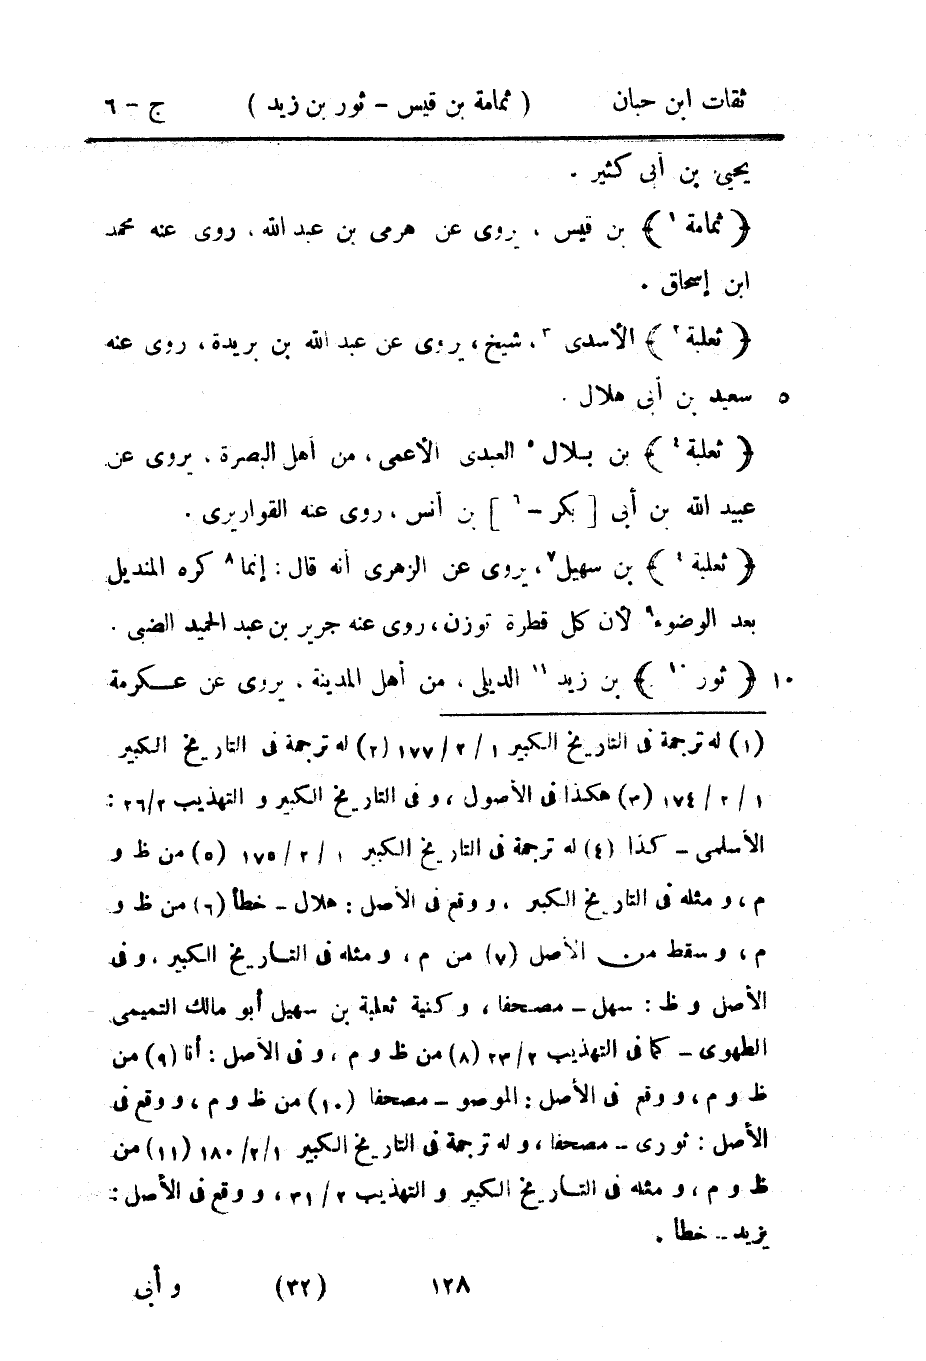 ثقات ابن حبان ( ثمامة بن قيس – ثور بن زيد ) ج – ٦
يحيى بن أبى كثير .
﴿ ثمامة ١ ﴾ بن قيس ، يروى عن هرمى بن عبد الله ، روى عنه محمد
ابن إسحاق .
﴿ ثعلبة ٢ ﴾ الأسدى ٣ ، شيخ ، يروى عن عبد الله بن بريدة ، روى عنه
٥ سعيد بن أبى هلال .
﴿ ثعلبة ٤ ﴾ بن بلال ٥ العبدى الأعمى ، من أهل البصرة ، يروى عن
عبيد الله بن أبى [ بكر – ٦ ] بن أنس ، روى عنه القواريرى .
﴿ ثعلبة ٤ ﴾ بن سهيل ٧ ، يروى عن الزهرى أنه قال : إنما ٨ كره المنديل
بعد الوضوء ٩ لأن كل قطرة توزن ، روى عنه جرير بن عبد الحميد الضبى .
١٠ ﴿ ثور ١٠ ﴾ بن زيد ١١ الديلى ، من أهل المدينة ، يروى عن عكرمة
(١) له ترجمة فى التاريخ الكبير ١ / ٢ / ١٧٧ (٢) له ترجمة فى التاريخ الكبير
١ / ٢ / ١٧٤ (٣) هكذا فى الأصول ، و فى التاريخ الكبير و التهذيب ٢ / ٢٦ :
الأسلمى – كذا (٤) له ترجمة فى التاريخ الكبير ١ / ٢ / ١٧٥ (٥) من ظ و
م ، و مثله فى التاريخ الكبير ، و وقع فى الأصل : هلال – خطأ (٦) من ظ و
م ، و سقط من الأصل (٧) من م ، و مثله فى التاريخ الكبير ، و فى
الأصل و ظ : سهل – مصحفا ، و كنية ثعلبة بن سهيل أبو مالك التميمى
الطهوى – كما فى التهذيب ٢ / ٢٣ (٨) من ظ و م ، و فى الأصل : أنا (٩) من
ظ و م ، و وقع فى الأصل : الموصو – مصحفا (١٠) من ظ و م ، و وقع فى
الأصل : ثورى – مصحفا ، و له ترجمة فى التاريخ الكبير ١ / ٢ / ١٨٠ (١١) من
ظ و م ، و مثله فى التاريخ الكبير و التهذيب ٢ / ٣١ ، و وقع فى الأصل :
يزيد – خطأ .
١٢٨ (٣٢) و أبى